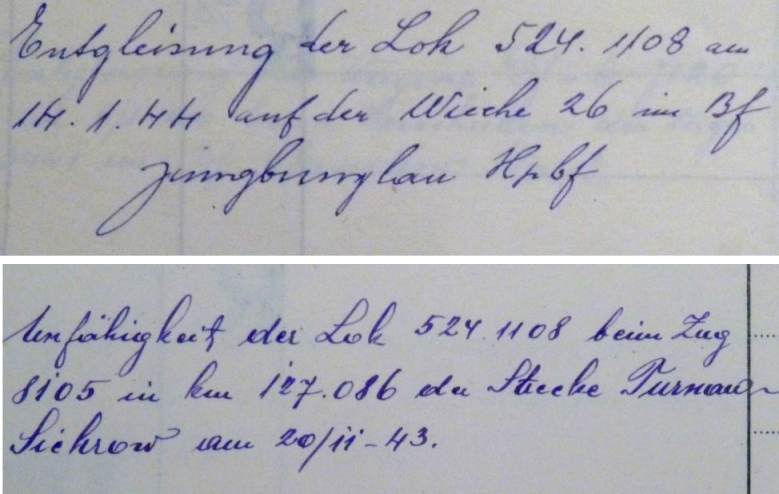 Entgleisung der Lok 524.1108 am
14.1.44 auf der Weiche 26 im Bf
Jungbunzlau Hpbf
Unfähigkeit der Lok 524.1108 beim Zug
8105 in km 127.086 der Strecke Turnau-
Sichrow am 20/11-43.